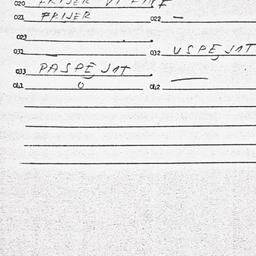 020
021 FRIJER 022 –
029
031 – 032 USPEJIT
033 PASPEJIT
041 0 042 —